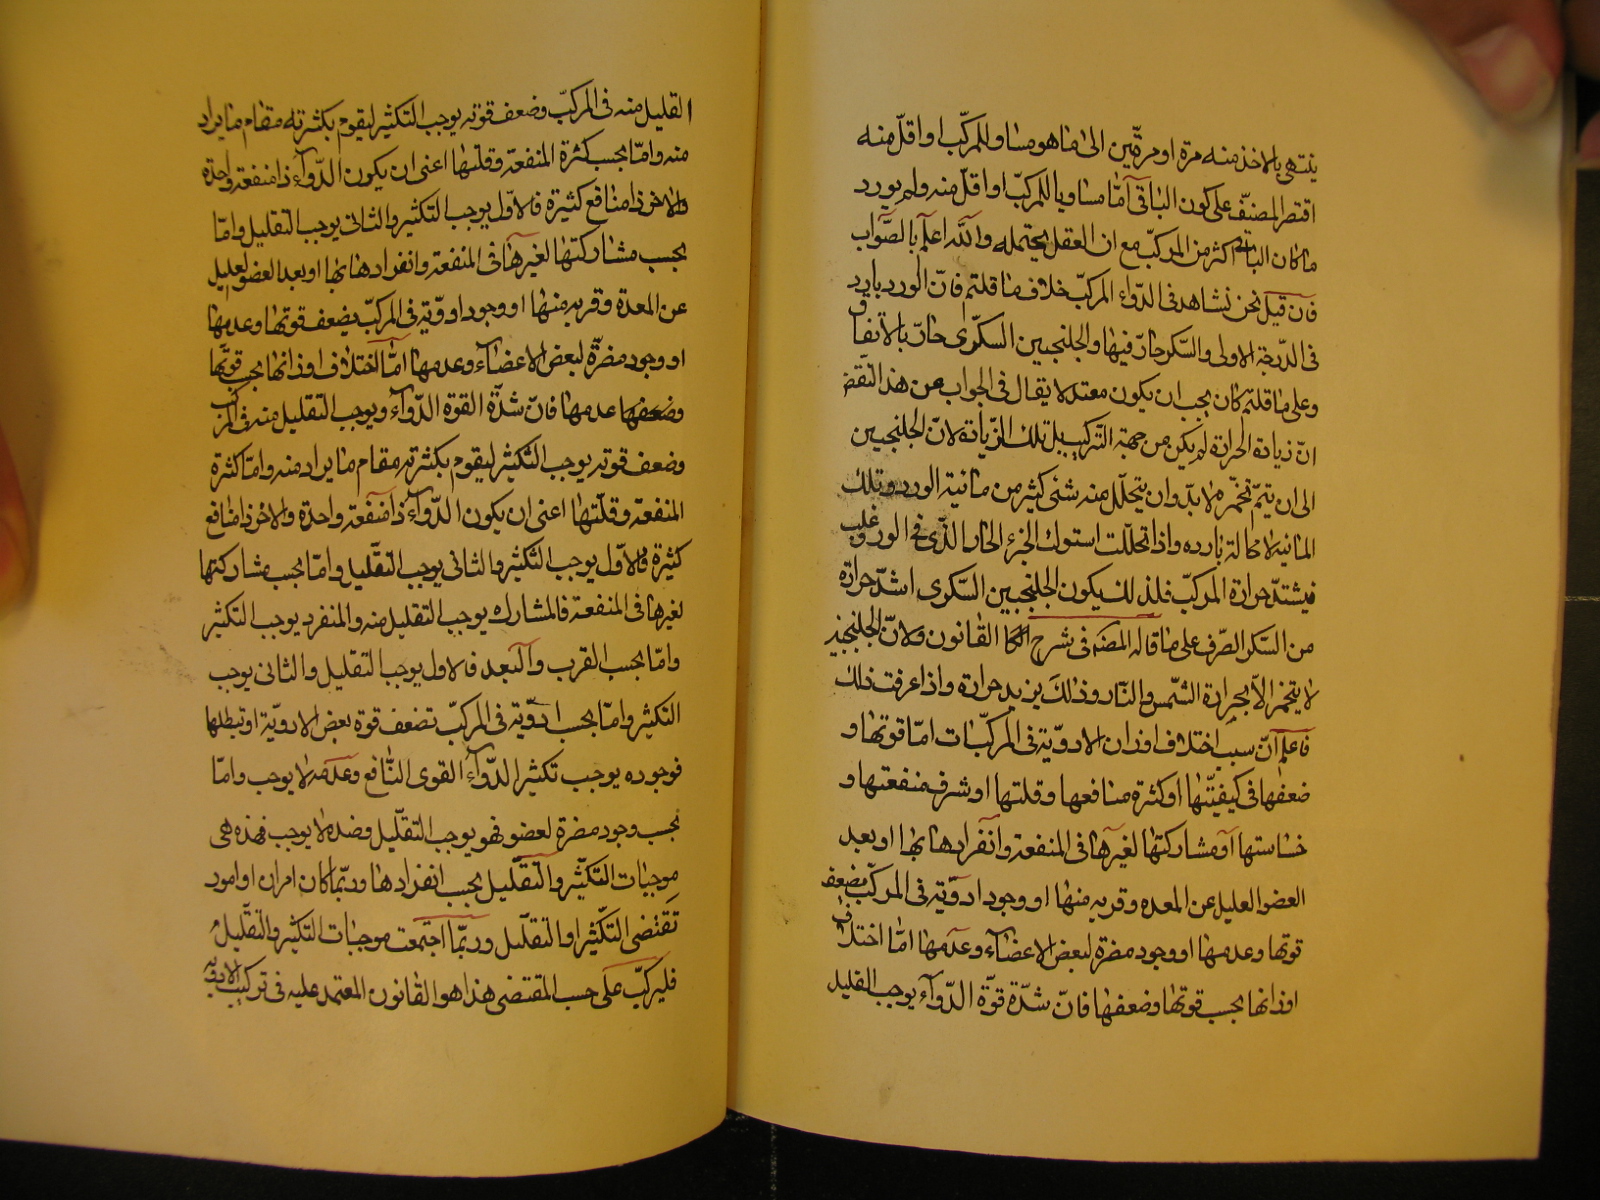 ينتهى بالاخذ منه مرة او مرتين الى ما هو مساو للمركّب او اقلّ منه
اقتصر المصنّف على كون الباقى امّا مساويا للمركّب او اقلّ منه ولم يورد
ما كان الباقى اكثر من المركّب مع ان العقل يحتمله والله اعلم بالصّواب
فان قيل نحن نشاهد فى الدّواء المركّب خلاف ما قلتم فانّ الورد بارد
فى الدّرجة الاولى والسّكر حارّ فيها والجلنجبين السكرّى حارّ بالاتفاق
وعلى ما قلتم كان يجب ان يكون معتدلا يقال فى الجواب عن هذا النّقض
انّ زيادة الحرارة لم يكن من جهة التّركيب بل تلك الزّيادة لانّ الجلنجبين
الى ان يتمّ تخمّره لا بدّ وان يتحلّل منه شئى كثير من مائية الورد وتلك
المائية لا محالة بارده واذا تحللت استولى الجزء الحار الذّى فى الورد وغلب
فيشتدّ حرارة المركّب فلذلك يكون الجلنجبين السّكرى اشدّ حرارة
من السّكر الصّرف على ما قاله المصنف فى شرح القانون ولانّ الجلنجبين
لا يتخمر الاّ بحرارة الشّمس والنّار وذلك يزيد حرارة واذا عرفت ذلك
فاعلم انّ سبب اختلاف اوزان الادويّة فى المركّبات امّا قوتها و
ضعفها فى كيفيّتها او كثرة منافعها وقلتها او شرف منفعتها و
خساستها او مشاركتها لغيرها فى المنفعة وانفرادها بها او بعد
العضو العليل عن المعده وقربه منها او وجود ادويّة فى المركّب مضعف
قوتها وعدمها او وجود مضرة لبعض الاعضاء وعدمها امّا اختلاف
اوزانها بحسب قوتها وضعفها فانّ شدّة قوّة الدّواء يوجب القليل
القليل منه فى المركّب وضعف قوته يوجب التكثير ليقوم بكثرته مقام ما يراد
منه وامّا بحسب كثرة المنفعة وقلتها اعنى ان يكون الدّواء ذا منفعة واحدة
والاخر ذا منافع كثيرة فالاوّل يوجب التكثير والثانى يوجب التقليل وامّا
بحسب مشاركتها لغيرها فى المنفعة وانفرادها بها او بعد العضو العليل
عن المعدة وقربه منها او وجود ادويّة فى المركّب يضعف قوتها وعدمها
او وجود مضرّة لبعض الاعضاء وعدمها امّا اختلاف اوزانها بحسب قوتها
وضعفها عدمها فانّ شدّة القوة الدّواء ويوجب التقليل منه فى المركب
وضعف قوته يوجب التكثير ليقوم بكثرته مقام ما يراد منه وامّا كثرة
المنفعة وقلّتها اعنى ان يكون الدّواء ذا منفعة واحدة والاخر ذا منافع
كثيرة فالاوّل يوجب التكثير والثانى يوجب التقليل وامّا بحسب مشاركتها
لغيرها فى المنفعة فالمشارك يوجب التقليل منه والمنفرد يوجب التكثير
وامّا بحسب القرب والبعد فالاول يوجب التقليل والثانى يوجب
التكثير وامّا بحسب ادويّة فى المركّب تضعف قوة بعض الادويّة او تبطلها
فوجوده يوجب تكثير الدّواء القوى النّافع وعدمه لا يوجب وامّا
بحسب وجود مضرة لعضو فهو يوجب التقليل وضده لا يوجب فهذه هى
موجبات التكثّير والتقّليل بحسب انفرادها وربّما كان امران او امور
تقتضى التكّثير او التقلّيل وربّما اجتمعت موجبات التكّثير والتقّليل
فليركّب على حسب المقتضى هذا هو القانون المعتمد عليه فى تركيب الادوية